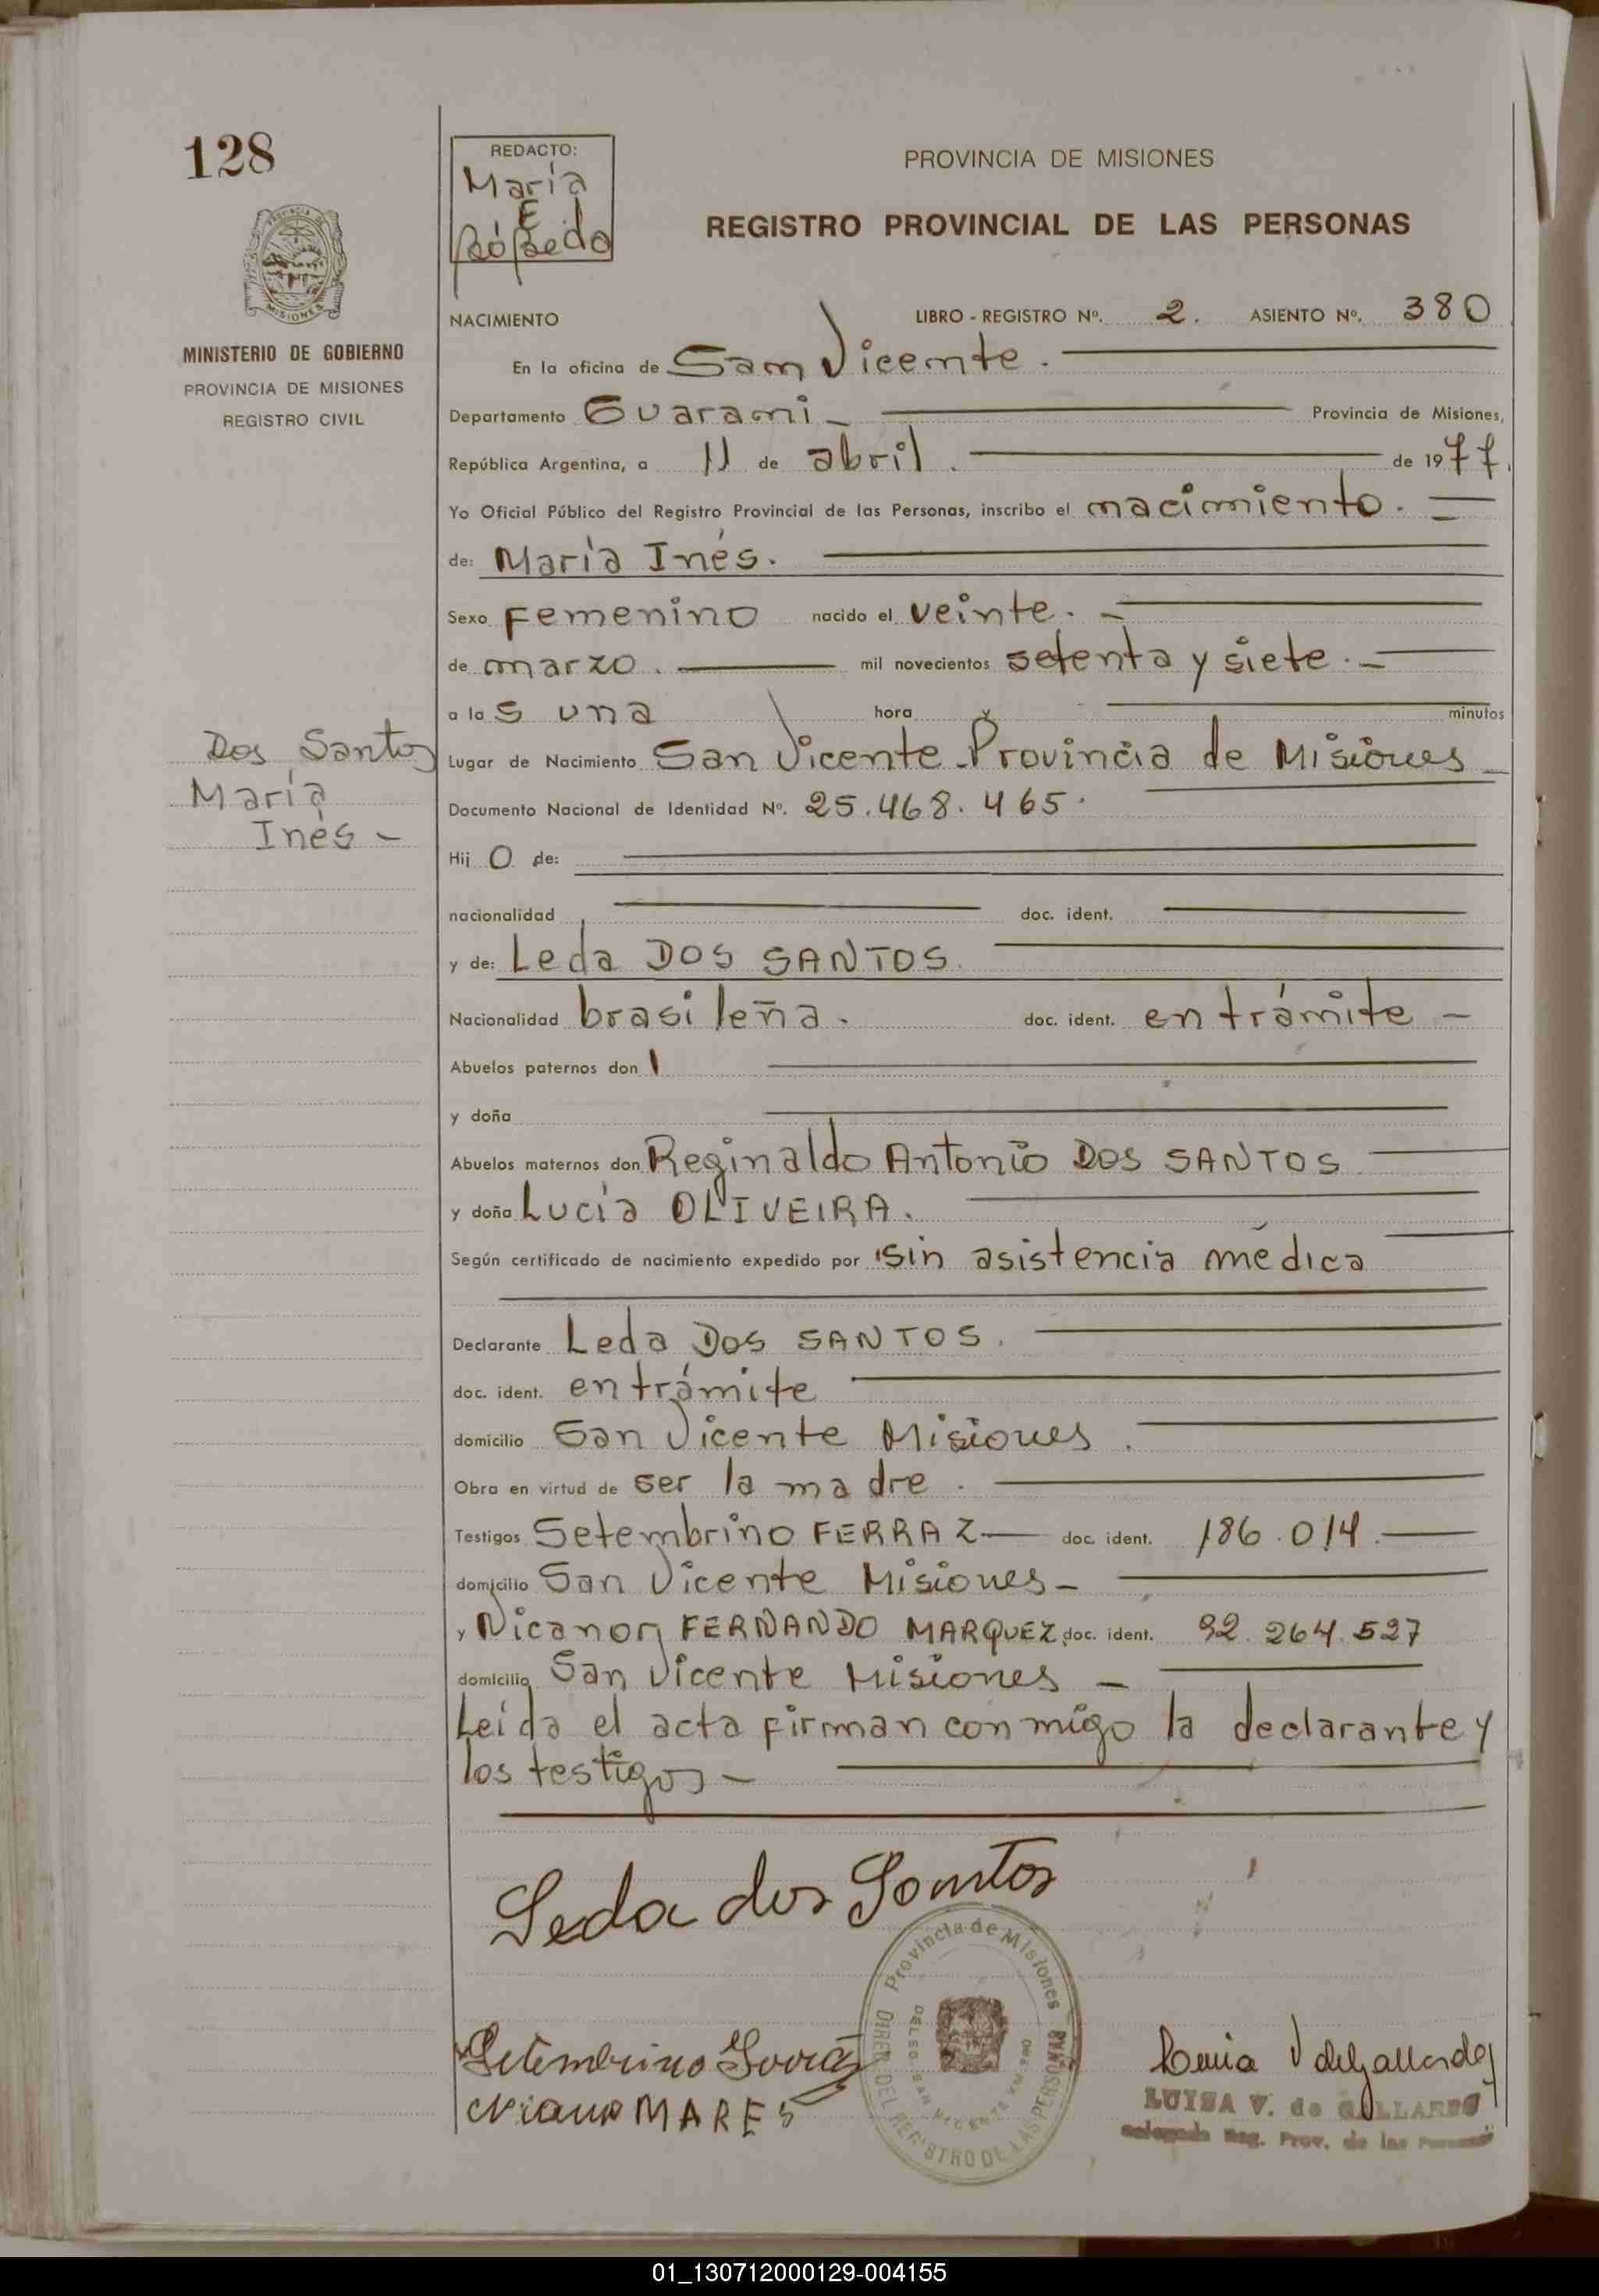 128
REDACTO:
María
E
PROVINCIA DE MISIONES
REGISTRO PROVINCIAL DE LAS PERSONAS
PROVINCIA DE
MISIONES
MINISTERIO DE GOBIERNO
PROVINCIA DE MISIONES
REGISTRO CIVIL
NACIMIENTO LIBRO - REGISTRO Nº. 2. ASIENTO Nº. 380
En la oficina de San Vicente.
Departamento Guarani - Provincia de Misiones,
República Argentina, a 11 de abril. de 1977.
Yo Oficial Público del Registro Provincial de las Personas, inscribo el nacimiento.
de: María Inés.
Sexo Femenino nacido el veinte. -
de marzo. mil novecientos setenta y siete. -
a las una hora y minutos
Dos Santos
María
Inés -
Lugar de Nacimiento San Vicente - Provincia de Misiones
Documento Nacional de Identidad Nº. 25.468.465.
Hij O de:
nacionalidad doc. ident.
y de: Leda DOS SANTOS.
Nacionalidad brasileña. doc. ident. en trámite -
Abuelos paternos don
y doña
Abuelos maternos don Reginaldo Antonio DOS SANTOS
y doña Lucía OLIVEIRA.
Según certificado de nacimiento expedido por sin asistencia médica
Declarante Leda DOS SANTOS.
doc. ident. en trámite
domicilio San Vicente Misiones.
Obra en virtud de ser la madre.
Testigos Setembrino FERRAZ doc. ident. 186.014.
domicilio San Vicente Misiones -
y Nicanor FERNANDO MARQUEZ doc. ident. 92.264.527
domicilio San Vicente Misiones -
Leída el acta firman conmigo la declarante y
los testigos -
Leda dos Santos
Provincia de Misiones
DIREC. DEL REGISTRO DE LAS PERSONAS
DELEG. SAN VICENTE
Setembrino
MARES
LUISA V. de GALLARDO
Delegada Reg. Prov. de las Personas
01_130712000129-004155